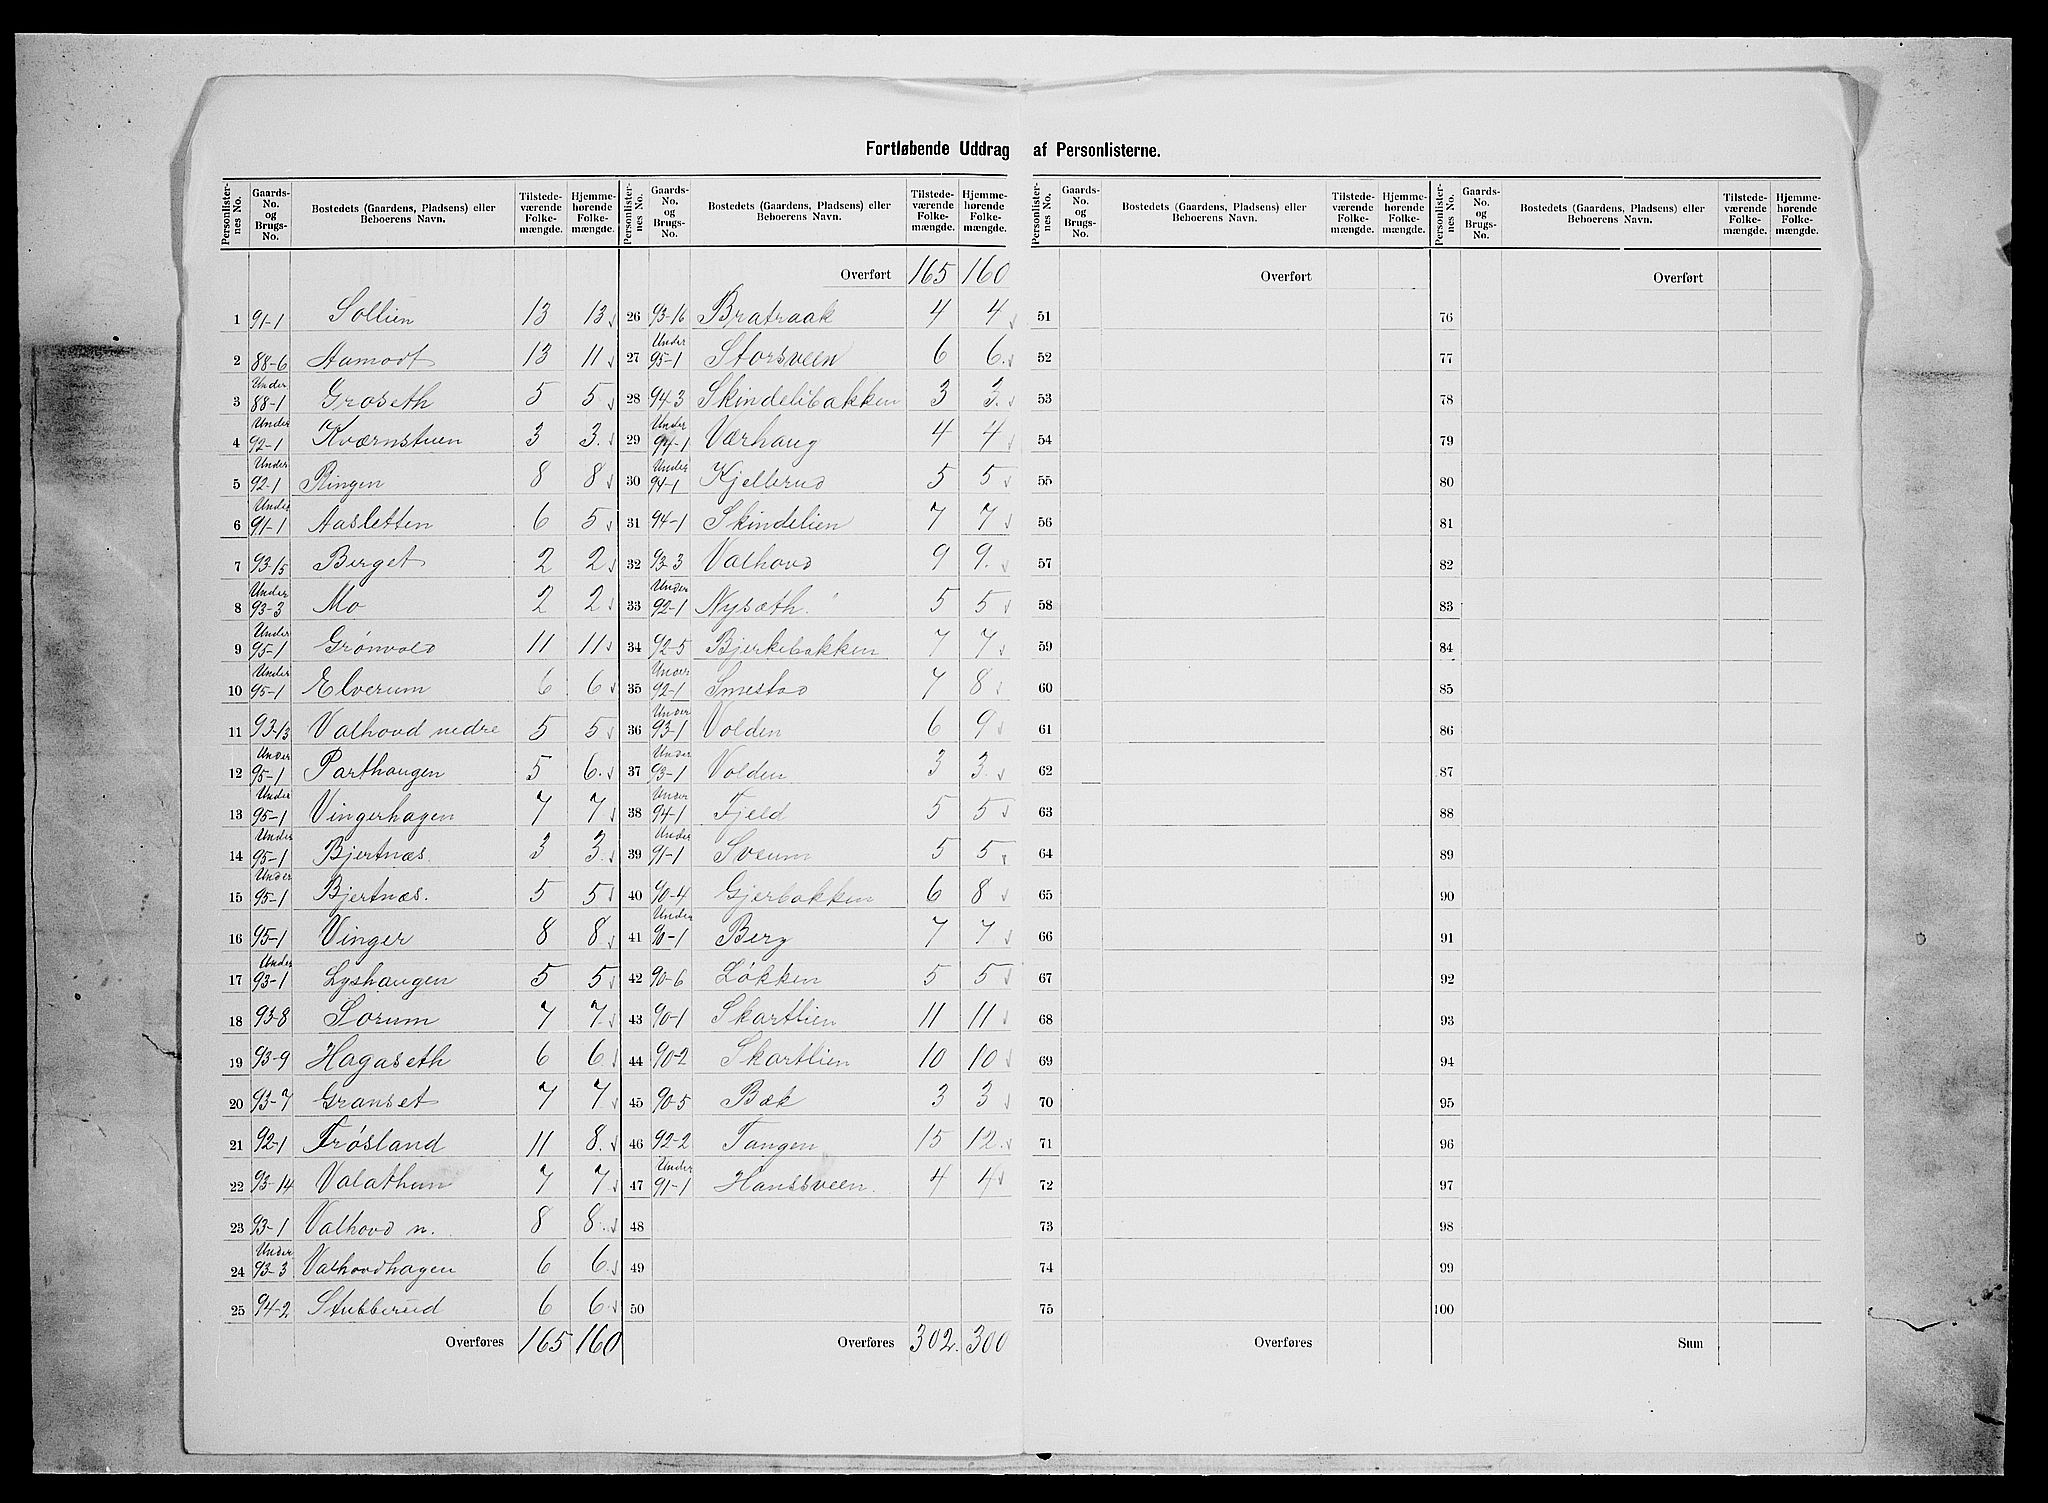 Fortløbende Uddrag af Personlisterne.
Personlisternes No. Gaards-No. og Brugs-No. Bostedets (Gaardens, Pladsens) eller Beboerens Navn. Tilstedeværende Folkemængde. Hjemmehørende Folkemængde.
1 91-1 Sollien 13 13
2 88-6 Aamodt 13 11
3 Under 88-1 Groseth 5 5
4 Under 92-1 Kværnstuen 3 3.
5 Under 92-1 Ringen 8 8
6 Under 91-1 Aasletten 6 5
7 93-15 Berget 2 2
8 Under 93-3 Mo 2 2
9 Under 95-1 Grønvold 11 11
10 Under 95-1 Elverum 6 6
11 93-13 Valhovd nedre 5 5
12 Under 95-1 Parthaugen 5 6.
13 Under 95-1 Vingerhagen 7 7
14 Under 95-1 Bjertnæs. 3 3
15 Under 95-1 Bjertnæs. 5 5
16 95-1 Vinger 8 8
17 Under 93-1 Lyshaugen 5 5
18 93-8 Sorum 7 7
19 93-9 Hagaseth 6 6
20 93-7 Granset 7 7
21 92-1 Frösland 11 8.
22 93-14 Valathun 7 7
23 93-1 Valhovd n. 8 8.
24 Under 93-3 Valhovdhagen 6 6.
25 94-2 Stubberud 6 6
Overføres 165 160
Personlisternes No. Gaards-No. og Brugs-No. Bostedets (Gaardens, Pladsens) eller Beboerens Navn. Tilstedeværende Folkemængde. Hjemmehørende Folkemængde.
Overført 165 160
26 93-16 Bratraak 4 4
27 Under 95-1 Storsveen 6 6.
28 94-3 Skindelibakken 3 3.
29 Under 94-1 Værhaug 4 4
30 Under 94-1 Kjellerud 5 5
31 94-1 Skindelien 7 7
32 93-3 Valhovd 9 9.
33 Under 92-1 Nysæth. 5 5
34 92-5 Bjerkebakken 7 7
35 Under 92-1 Smestad 7 8
36 Under 93-1 Volden 6 9
37 Under 93-1 Volden 3 3.
38 Under 94-1 Fjeld 5 5
39 Under 91-1 Sveum 5 5
40 90-4 Gjerbakken 6 8
41 Under 90-1 Berg 7 7
42 90-6 Løkken 5 5
43 90-1 Skartlien 11 11
44 90-2 Skartlien 10 10
45 90-5 Bæk 3 3
46 92-2 Tangen 15 12.
47 Under 91-1 Hanssveen. 4 4
48
49
50
Overføres 302. 300
Personlisternes No. Gaards-No. og Brugs-No. Bostedets (Gaardens, Pladsens) eller Beboerens Navn. Tilstedeværende Folkemængde. Hjemmehørende Folkemængde.
Overført
51
52
53
54
55
56
57
58
59
60
61
62
63
64
65
66
67
68
69
70
71
72
73
74
75
Overføres
Personlisternes No. Gaards-No. og Brugs-No. Bostedets (Gaardens, Pladsens) eller Beboerens Navn. Tilstedeværende Folkemængde. Hjemmehørende Folkemængde.
Overført
76
77
78
79
80
81
82
83
84
85
86
87
88
89
90
91
92
93
94
95
96
97
98
99
100
Sum